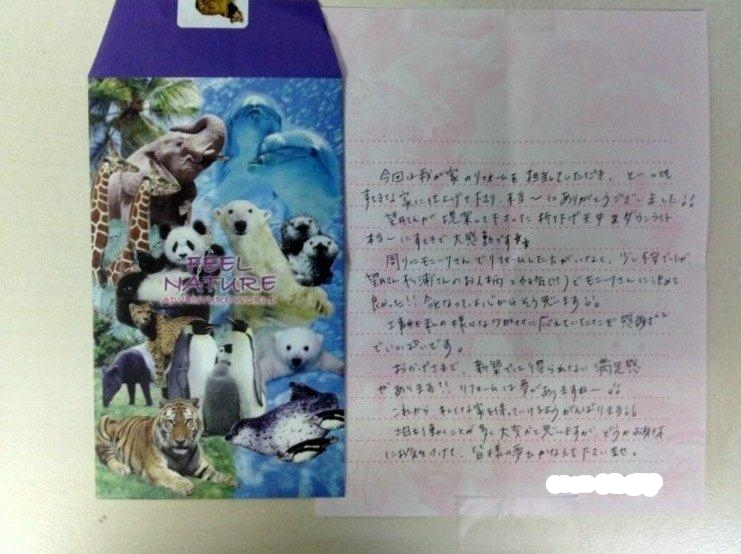 FEEL
NATURE
ADVENTURE WORLD
今回は我が家のリフォームを担当していただき、と〜っても
すてきな家に仕上げて下さり、本当〜にありがとうございました!!
望月さんが提案して下さった折り下げ天井&ダウンライト
本当〜にすてきで大感動です
周りにモニークさんでリフォームした方がいなく、少し不安でしたが、
望月さん、松浦さんのお人柄と好気(!?)でモニークさんに決めて
良かった!!今となって、心からそう思います!!
工事中も私の様々なワガママに応えていただいて感謝
でいっぱいです。
おかげさまで、新築でも得られない満足感
があります!!リフォームは夢がありますね〜!!
これからキレイな家を保っていけるようがんばります!!
土日も動くことが多く大変かと思いますが、どうかお身体
にお気をつけて、皆様の夢をかなえて下さいませ。